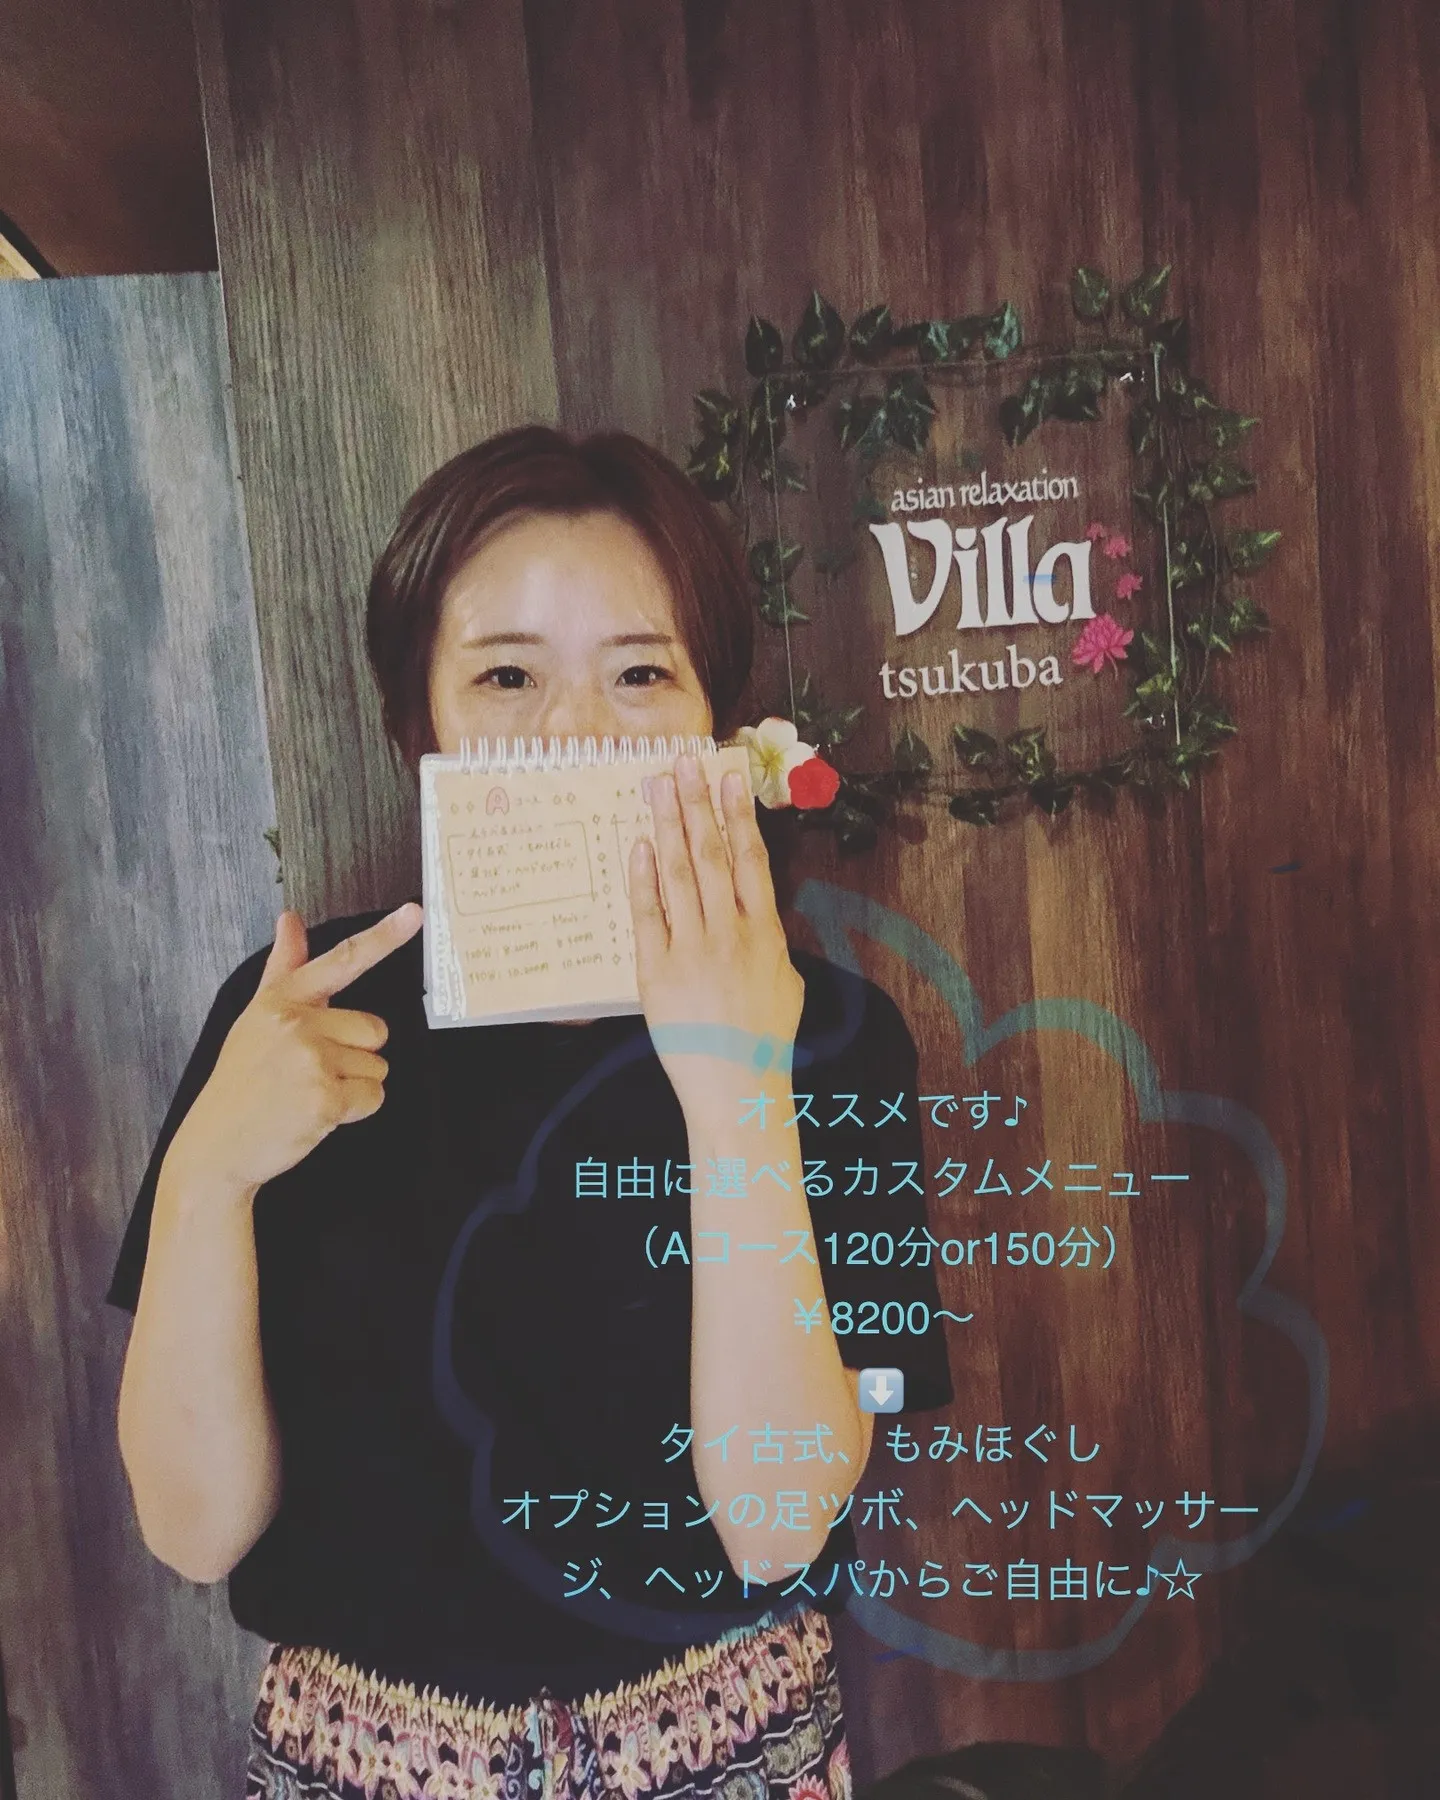 asian relaxation
Villa
tsukuba
A コース
- Women's - - Men's -
オススメです♪
自由に選べるカスタムメニュー
（Aコース120分or150分）
￥8200〜
⬇️
タイ古式、もみほぐし
オプションの足ツボ、ヘッドマッサー
ジ、ヘッドスパからご自由に♪☆